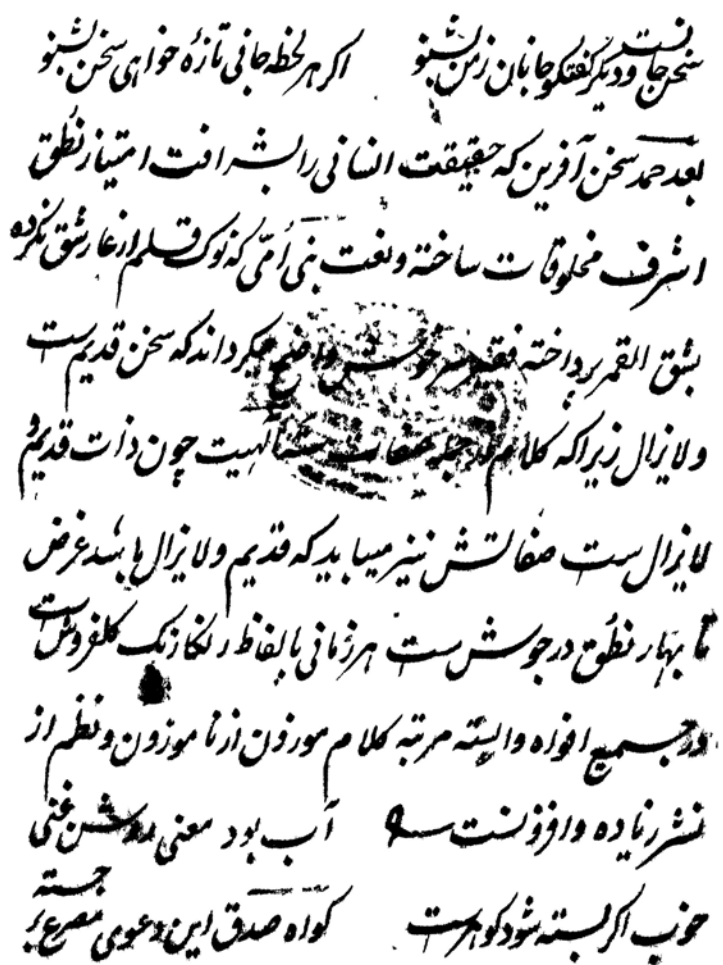 سخن جانست و دیگر گفتگو جانان ز من بشنو اگر هر لحظه جانی تازهٔ خواهی سخن بشنو
بعد حمد سخن آفرین که حقیقت انسانی را بشرافت امتیاز نُطق
اشرف مخلوقات ساخته و نعت بنی اُمّی که نوک قلم از غار شق نکرده
بشق القمر پرداخته میگرداند که سخن قدیم ست
و لایزال زیرا که کلام الهیت چون ذات قدیم و
لایزال ست صفاتش نیز میباید که قدیم و لایزال باشد غرض
تا بهار نطق در جوش ست هر زمانی بالفاظ رنگارنگ گلفروش ست
در جمیع افواه والسنه مرتبه کلام موزون از نا موزون و نظم از
نثر زیاده و افزونست آب بود معنی روشن غنی
خوب اگر بسته شود گوهرست گواه صدق این دعوی مصرع برجسته